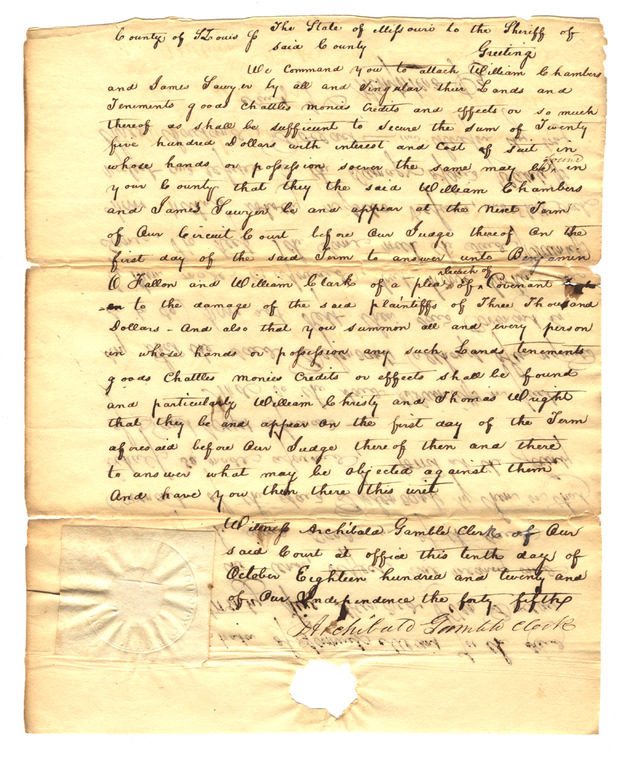 The State of Missouri to the Sheriff of
County of St Louis
said County Greeting
We Command you to attach William Chambers
and James Sawyer by all and Singular their Lands and
Tenements goods Chattles monies Credits and effects or so much
thereof as shall be sufficient to secure the sum of Twenty
five hundred Dollars with interest and Cost of suit in
whose hands or possession soever the same may be found in
your County that they the said William Chambers
and James Sawyer be and appear at the Next Term
of Our Circuit Court before Our Judge thereof On the
first day of the said Term to answer unto Benjamin
O Fallon and William Clark of a plea of breach of Covenant
to the damage of the said plaintiffs of Three Thousand
Dollars - And also that you summon all and every person
in whose hands or possession any such Lands tenements
goods Chattles monies Credits or effects shall be found
and particularly William Christy and Thomas Wright
that they be and appear on the first day of the Term
aforesaid before Our Judge thereof then and there
to answer what may be objected against them
And have you then there this writ
Witness Archibald Gamble Clerk of Our
said Court at office this tenth day of
October Eighteen hundred and twenty and
of Our Independence the forty fifth
Archibald Gamble Clerk